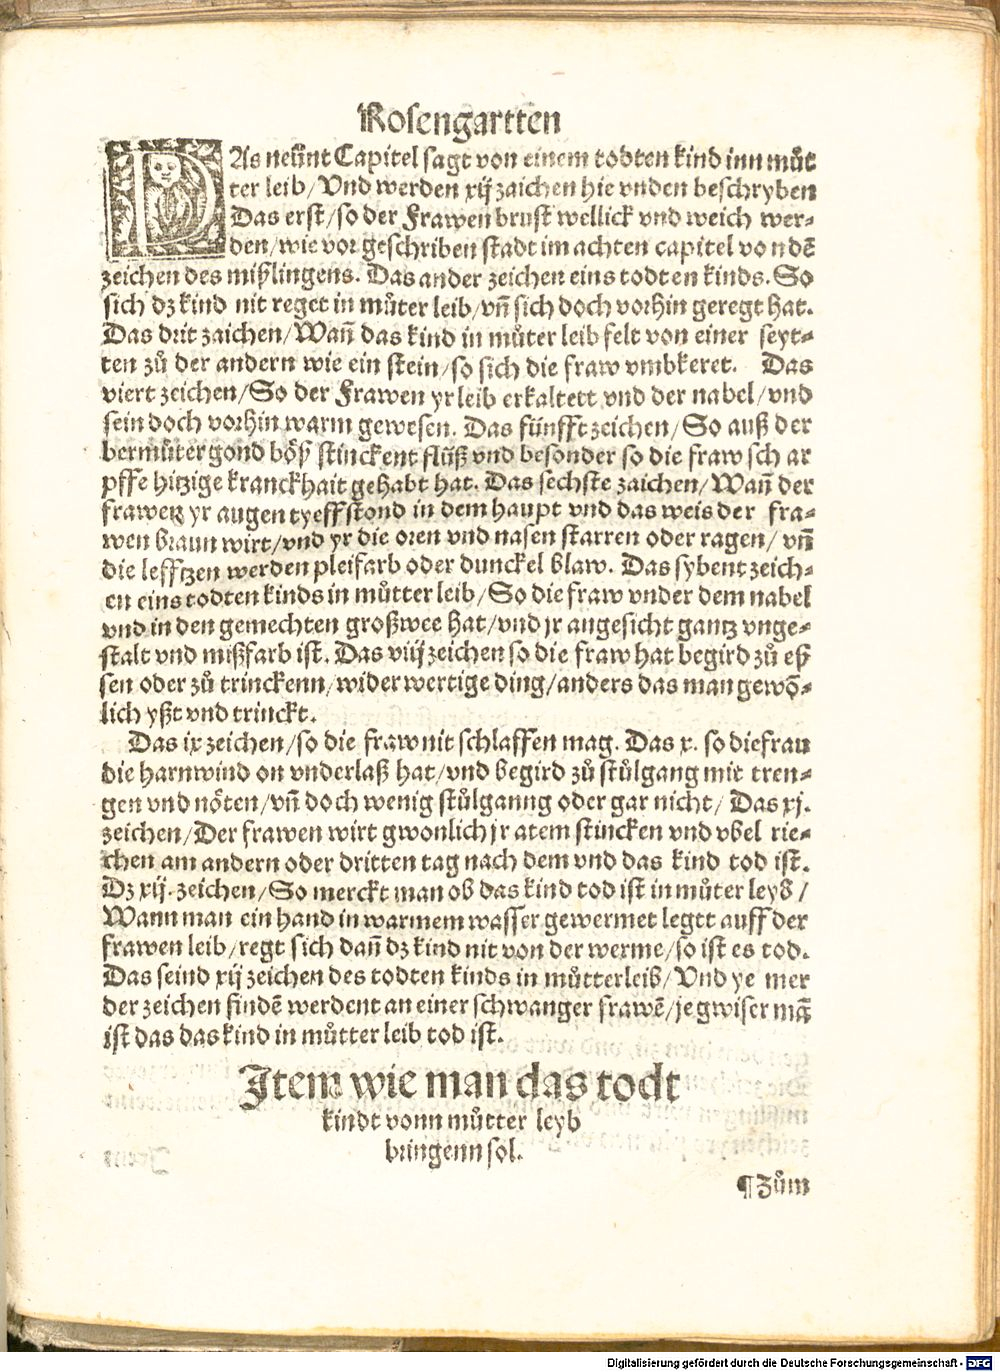 Rosengartten
DAs neünt Capitel sagt von einem todten kind inn můt
ter leib/Vnd werden xij zaichen hie vnden beschryben
Das erst/so der Frawen brust wellick vnd weich wer⸗
den/wie vor geschriben stadt im achten capitel von dē
zeichen des mißlingens. Das ander zeichen eins todten kinds. So
sich dz kind nit reget in můter leib/vñ sich doch vorhin geregt hat.
Das drit zaichen/Wañ das kind in můter leib felt von einer seyt⸗
ten zů der andern wie ein stein/so sich die fraw vmbkeret. Das
viert zeichen/So der Frawen yr leib erkaltett vnd der nabel/vnd
sein doch vorhin warm gewesen. Das fünfft zeichen/So auß der
bermůter gond böß stinckent flüß vnd besonder so die fraw schar
pffe hitzige kranckhait gehabt hat. Das sechste zaichen/Wañ der
frawen yr augen tyeff stond in dem haupt vnd das weis der fra⸗
wen braun wirt/vnd yr die oren vnd nasen starren oder ragen/vñ
die lefftzen werden pleifarb oder dunckel blaw. Das sybent zeich⸗
en eins todten kinds in můtter leib/So die fraw vnder dem nabel
vnd in den gemechten großwee hat/vnd jr angesicht gantz vnge⸗
stalt vnd mißfarb ist. Das viij zeichen so die fraw hat begird zů eß
sen oder zů trinckenn/wider wertige ding/anders das man gewō⸗
lich yßt vnd trinckt.
Das ix zeichen/so die fraw nit schlaffen mag. Das x. so die frau
die harnwind on vnderlaß hat/vnd begird zů stůlgang mit tren⸗
gen vnd nöten/vñ doch wenig stůlganng oder gar nicht/ Das xj.
zeichen/Der frawen wirt gwonlich jr atem stincken vnd vbel rie⸗
chen am andern oder dritten tag nach dem vnd das kind tod ist.
Dz xij. zeichen/So merckt man ob das kind tod ist in můter leyb/
Wann man ein hand in warmem wasser gewermet legtt auff der
frawen leib/regt sich dañ dz kind nit von der werme/so ist es tod.
Das seind xij zeichen des todten kinds in můtterleib/Vnd ye mer
der zeichen findē werdent an einer schwanger frawē/je gwiser mā
ist das das kind in můtter leib tod ist.
Item wie man das todt
kindt vonn můtter leyb
bringenn sol.
¶Zům
Digitalisierung gefördert durch die Deutsche Forschungsgemeinschaft - DFG